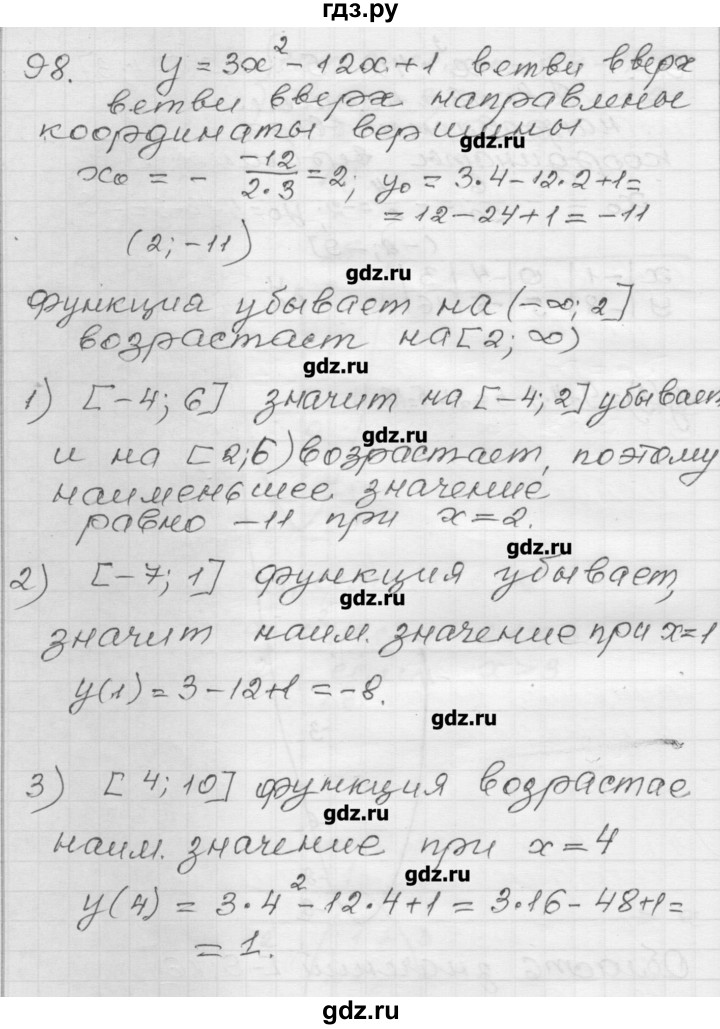 гдз.ру
98. y = 3x² - 12x + 1 ветви вверх
ветви вверх направлены
координаты вершины
gdz.ru
x₀ = - -12/2·3 = 2; y₀ = 3·4 - 12·2 + 1 =
= 12 - 24 + 1 = -11
(2; -11)
gdz.ru
функция убывает на (-∞; 2]
возрастает на [2; ∞)
gdz.ru
1) [-4; 6] значит на [-4; 2] убывает
gdz.ru
и на [2; 6) возрастает, поэтому
наименьшее значение
равно -11 при x = 2.
gdz.ru
2) [-7; 1] функция убывает,
gdz.ru
значит наим. значение при x = 1
y(1) = 3 - 12 + 1 = -8.
gdz.ru
3) [4; 10] функция возрастае
gdz.ru
наим. значение при x = 4
gdz.ru
y(4) = 3·4² - 12·4 + 1 = 3·16 - 48 + 1 =
= 1.
gdz.ru
gdz.ru